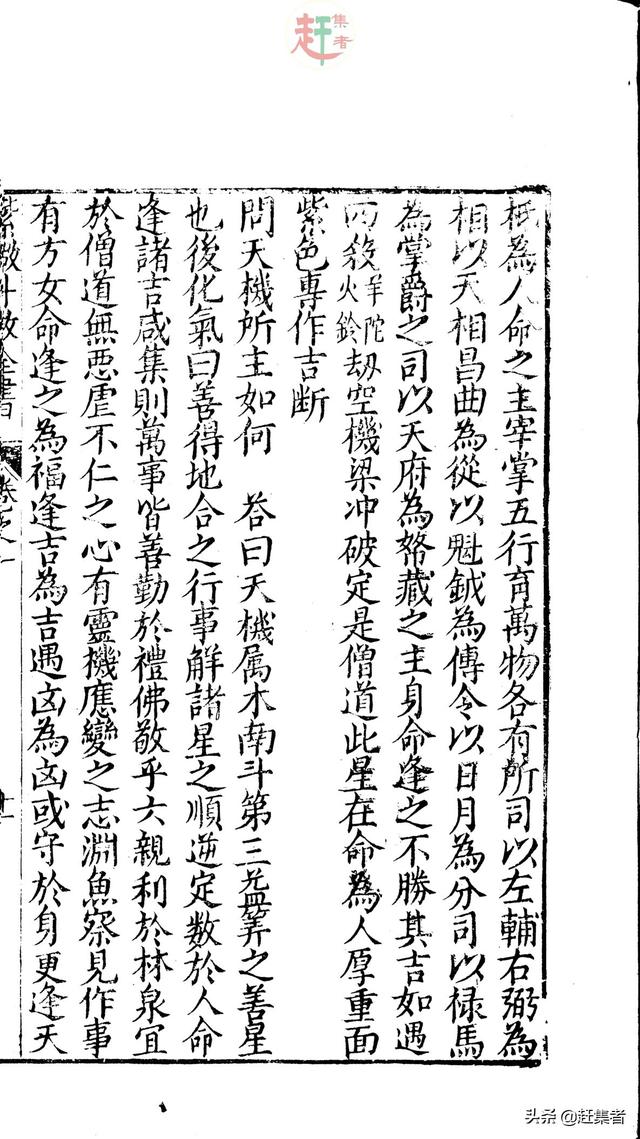 赶集者
袛為人命之主宰掌五行育萬物各有所司以左輔右弼為
相以天相昌曲為從以魁鉞為傳令以日月為分司以祿馬
為掌爵之司以天府為帑藏之主身命逢之不勝其吉如遇
四殺羊陀火鈴劫空機梁冲破定是僧道此星在命為人厚重面
紫色專作吉断
問天機所主如何　荅曰天機属木南斗第三益筭之善星
也後化氣曰善得地合之行事解諸星之順逆定数於人命
逢諸吉咸集則萬事皆善勤於禮佛敬乎六親利於林泉宜
於僧道無惡虐不仁之心有靈機應變之志淵魚察見作事
有方女命逢之為福逢吉為吉遇凶為凶或守於身更逢天
紫微斗数全書　卷之一　十一
头条 @赶集者